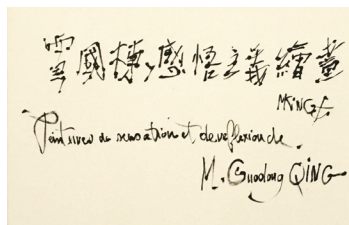 覃國棟,感悟主義繪畫
Peintures de sensation et de reflexion de
M. Guodong QING